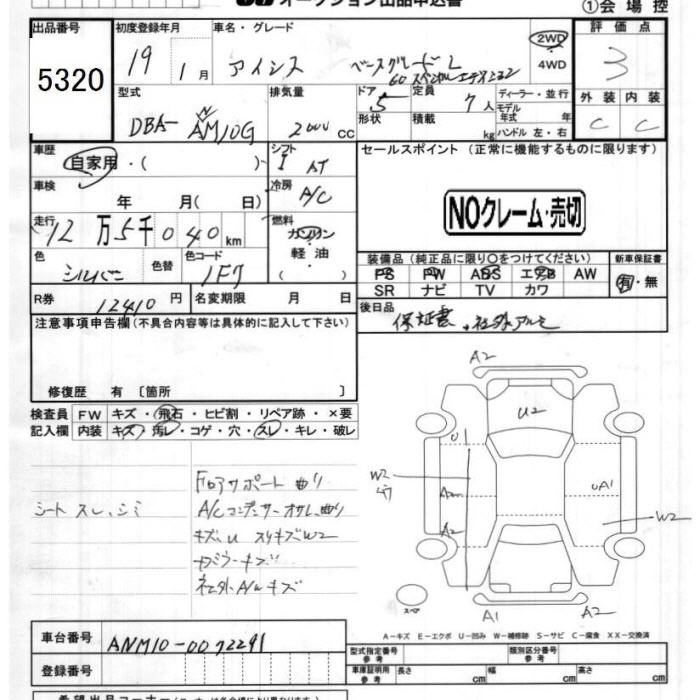 オークション出品申込書
①会場控
出品番号 初度登録年月 車名・グレード 2WD 4WD 評価点
5320 19年 1月 アイシス ベースグレード L 60 スペシャルエディション 3
型式 排気量 ドア 5 定員 7人 ディーラー・並行 外装 内装
DBA-ANM10G 2000cc 形状 積載 kg モデル年式 年 ハンドル 左・右 C C
車歴 シフト セールスポイント (正常に機能するものに限ります)
自家用・( ) I AT
車検 年 月( 日) 冷房 A/C
NOクレーム・売切
走行 12万5千040km 燃料 ガソリン・軽油・( )
装備品 (純正品に限り○をつけてください) 新車保証書
色 シルバー 色替 色コード 1F7
PS PW ABS エアB AW 有・無
SR ナビ TV カワ
R券 12410円 名変期限 月 日
後日品 保証書、社外アルミ
注意事項申告欄(不具合内容等は具体的に記入して下さい)
修復歴 有 〔箇所 〕
検査員記入欄 FW キズ・飛石・ヒビ割・リペア跡・×要
内装 キズ・汚レ・コゲ・穴・スレ・キレ・破レ
A2
U2
U1
W2
A2
A2
UA1
W2
Fロアサポート曲り
シート スレ、シミ
A/Cコンデンサーオサレ、曲り
キズ、U スリキズW2
ドアミラーキズ
社外A/Wキズ
スペア
A1
A2
A-キズ E-エクボ U-凹み W-補修跡 S-サビ C-腐食 XX-交換済
車台番号 ANM10-0072291
型式指定番号 参考 類別区分番号 参考
登録番号
車庫証明用 参考 長さ cm 幅 cm 高さ cm